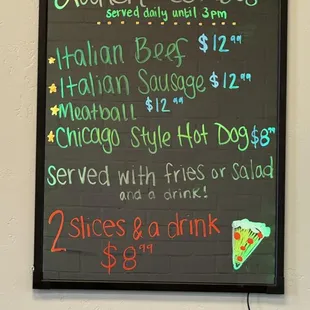 served daily until 3pm
Italian Beef $12.99
Italian Sausage $12.99
Meatball $12.99
Chicago Style Hot Dog $8.99
served with fries or salad
and a drink!
2 slices & a drink
$8.99